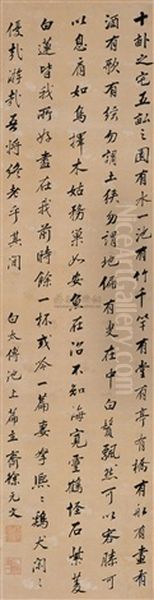 十畝之宅五畝之園有水一池有竹千竿有堂有亭有橋有船有書有
酒有歌有絃勿謂土狹勿謂地偏有叟在中白鬚飄然可以容膝可
以息肩如鳥擇木姑務巢安如魚在沼不知海寬靈鶴怪石紫菱
白蓮皆我所好盡在我前時飲一杯或吟一篇妻孥熙熙鷄犬閒閒
優哉游哉吾將終老乎其間 白太傅池上篇立齋徐元文